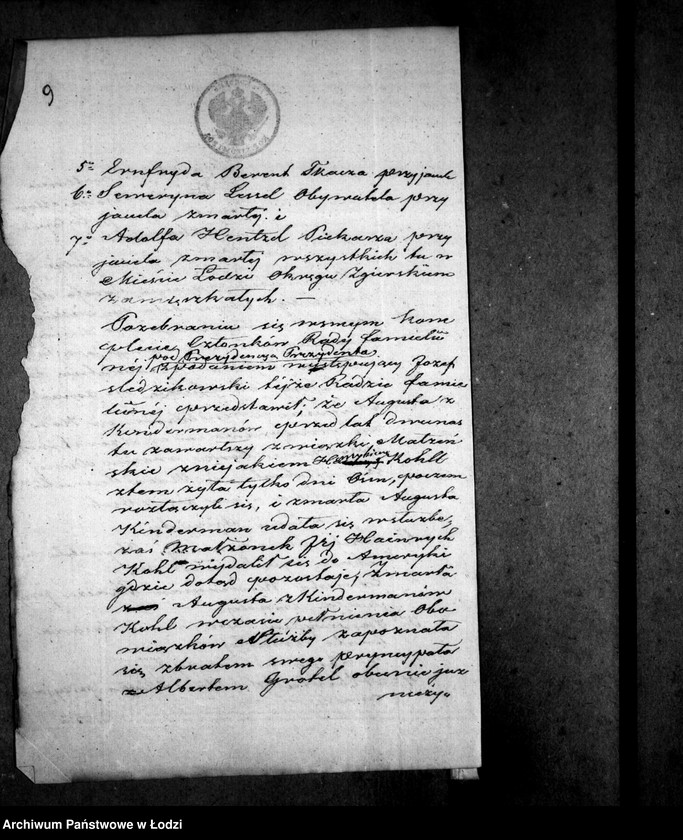 9
5º Ernfryda Berent Tkacza przyjaciela
6º Seweryna Lessel Obywatela przy
jaciela zmarłej i
7º Adolfa Hentzel Piekarza przy
jaciela zmarłej wszystkich tu w
Mieście Łodzi Okręgu Zgierskim
zamięszkałych. —
Pozebraniu się wsmym kom
plecie Członków Rady familii
pod Prezydencją Prezydenta
nej występujący Józef
Śledzikowski tejże Radzie fami
lijnej przedstawił; że Augusta z
Kindermanów przed lat dwunas
tu zawartszy związki Małżeń
skie zniejakiem Kohll
ztem żyła tylko dni Ośm, poczem
rozłączyli się, i zmarła Augusta
Kinderman udała się wsłużbę,
zaś Małżonek Jej Hainrych
Kohl wydalił się do Ameryki
gdzie dotąd pozostaje, Zmarła
Augusta z Kindermanów
Kohl wczasie pełnienia Obo
wiązków Służby zapoznała
się zbratem swego pryncypała
z Albertem Grotel obecnie już
nieży
Archiwum Państwowe w Łodzi